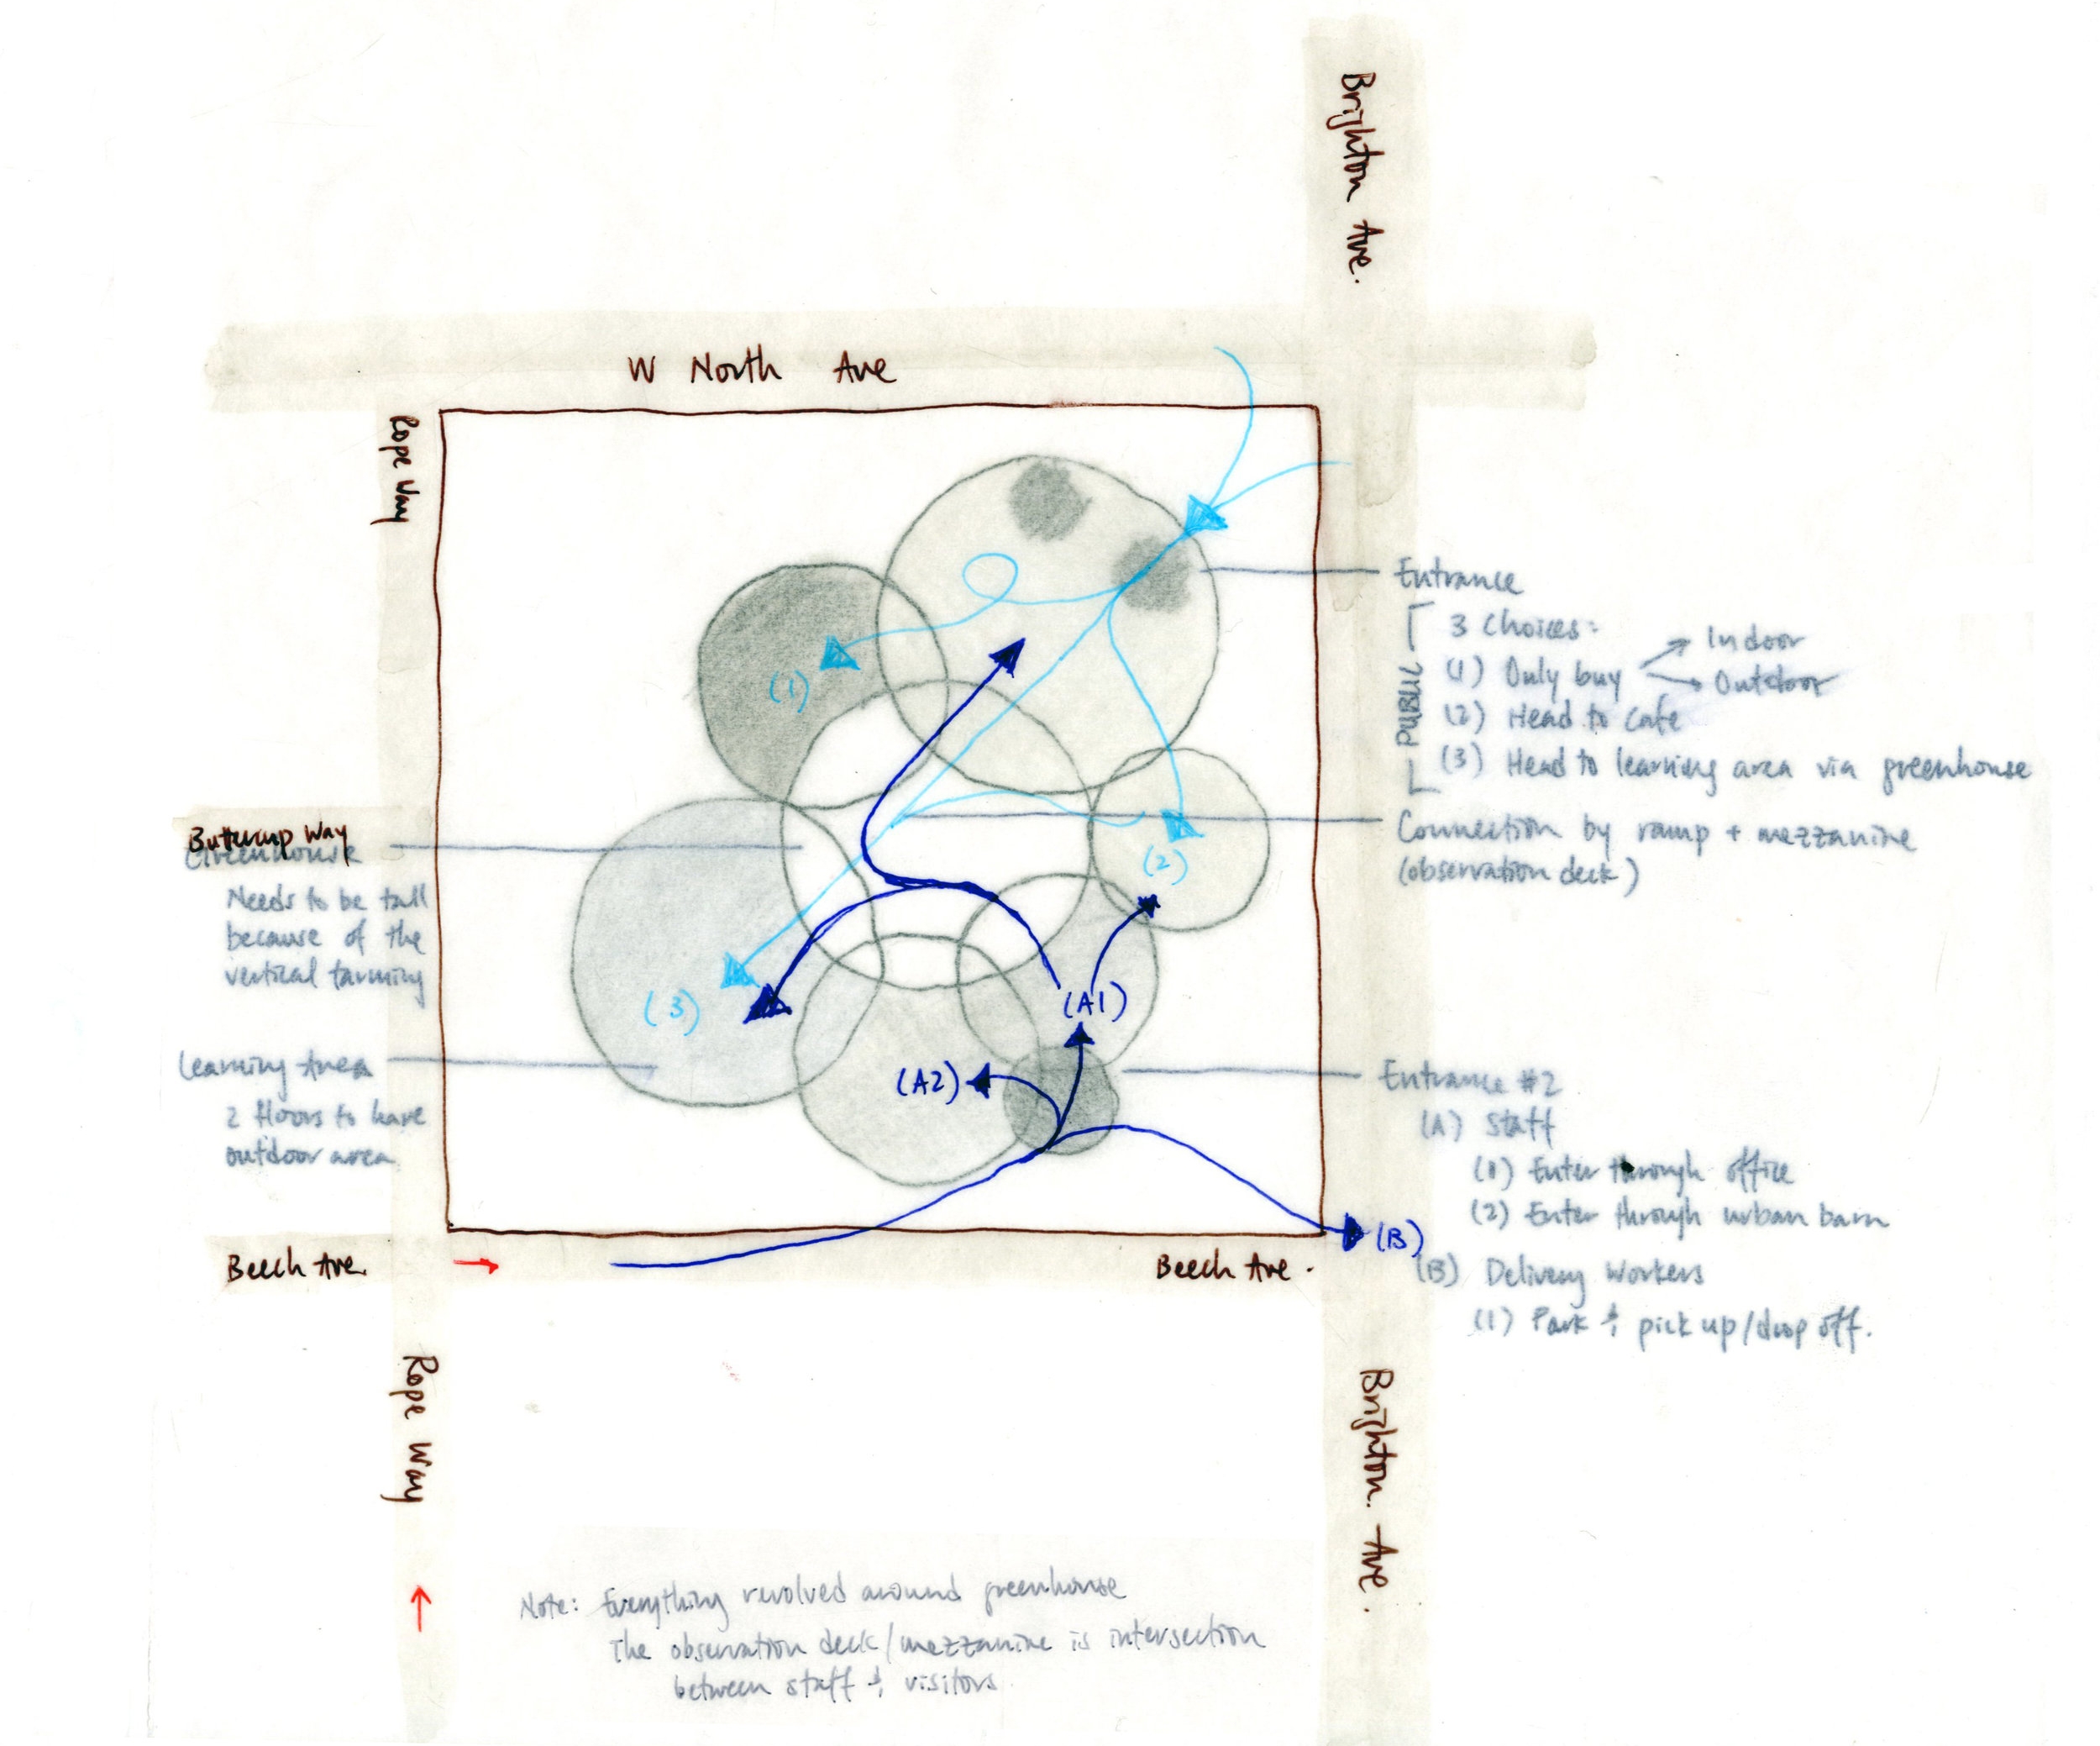 Brighton Ave.
W North Ave
Rope Way
Entrance
PUBLIC
3 Choices:
(1) Only buy
Indoor
Outdoor
(2) Head to cafe
(3) Head to learning area via greenhouse
(1)
Connection by ramp + mezzanine
(observation deck)
Buttercup Way
Greenhouse
Needs to be tall
because of the
vertical farming
(2)
(3)
(A1)
(A2)
Learning Area
2 floors to have
outdoor area
Entrance #2
(A) Staff
(1) Enter through office
(2) Enter through urban barn
(B)
(B) Delivery Workers
(1) Park & pick up/drop off.
Beech Ave.
Beech Ave.
Rope Way
Brighton. Ave.
Note: Everything revolved around greenhouse
The observation deck/mezzanine is intersection
between staff & visitors